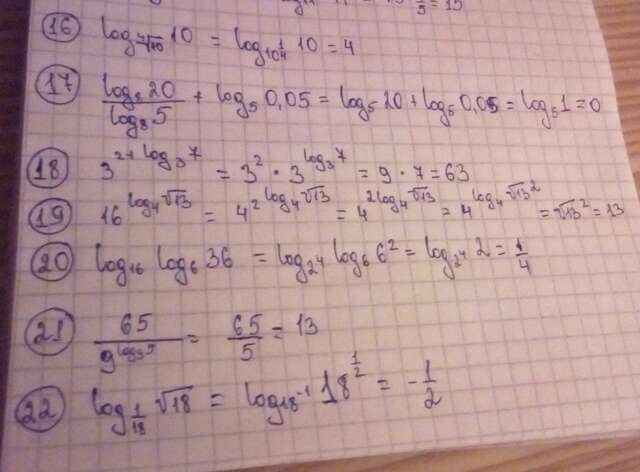 = 15
⑯ log_{⁴√10} 10 = log_{10^{1/4}} 10 = 4
⑰ log₈20 / log₈5 + log₅ 0,05 = log₅ 20 + log₅ 0,05 = log₅ 1 = 0
⑱ 3^{2+log₃7} = 3² · 3^{log₃7} = 9 · 7 = 63
⑲ 16^{log₄√13} = 4^{2 log₄√13} = 4^{2log₄√13} = 4^{log₄√13²} = √13² = 13
⑳ log₁₆ log₆ 36 = log_{2⁴} log₆ 6² = log_{2⁴} 2 = 1/4
㉑ 65 / 9^{log₉5} = 65/5 = 13
㉒ log_{1/18} √18 = log_{18⁻¹} 18^{1/2} = -1/2